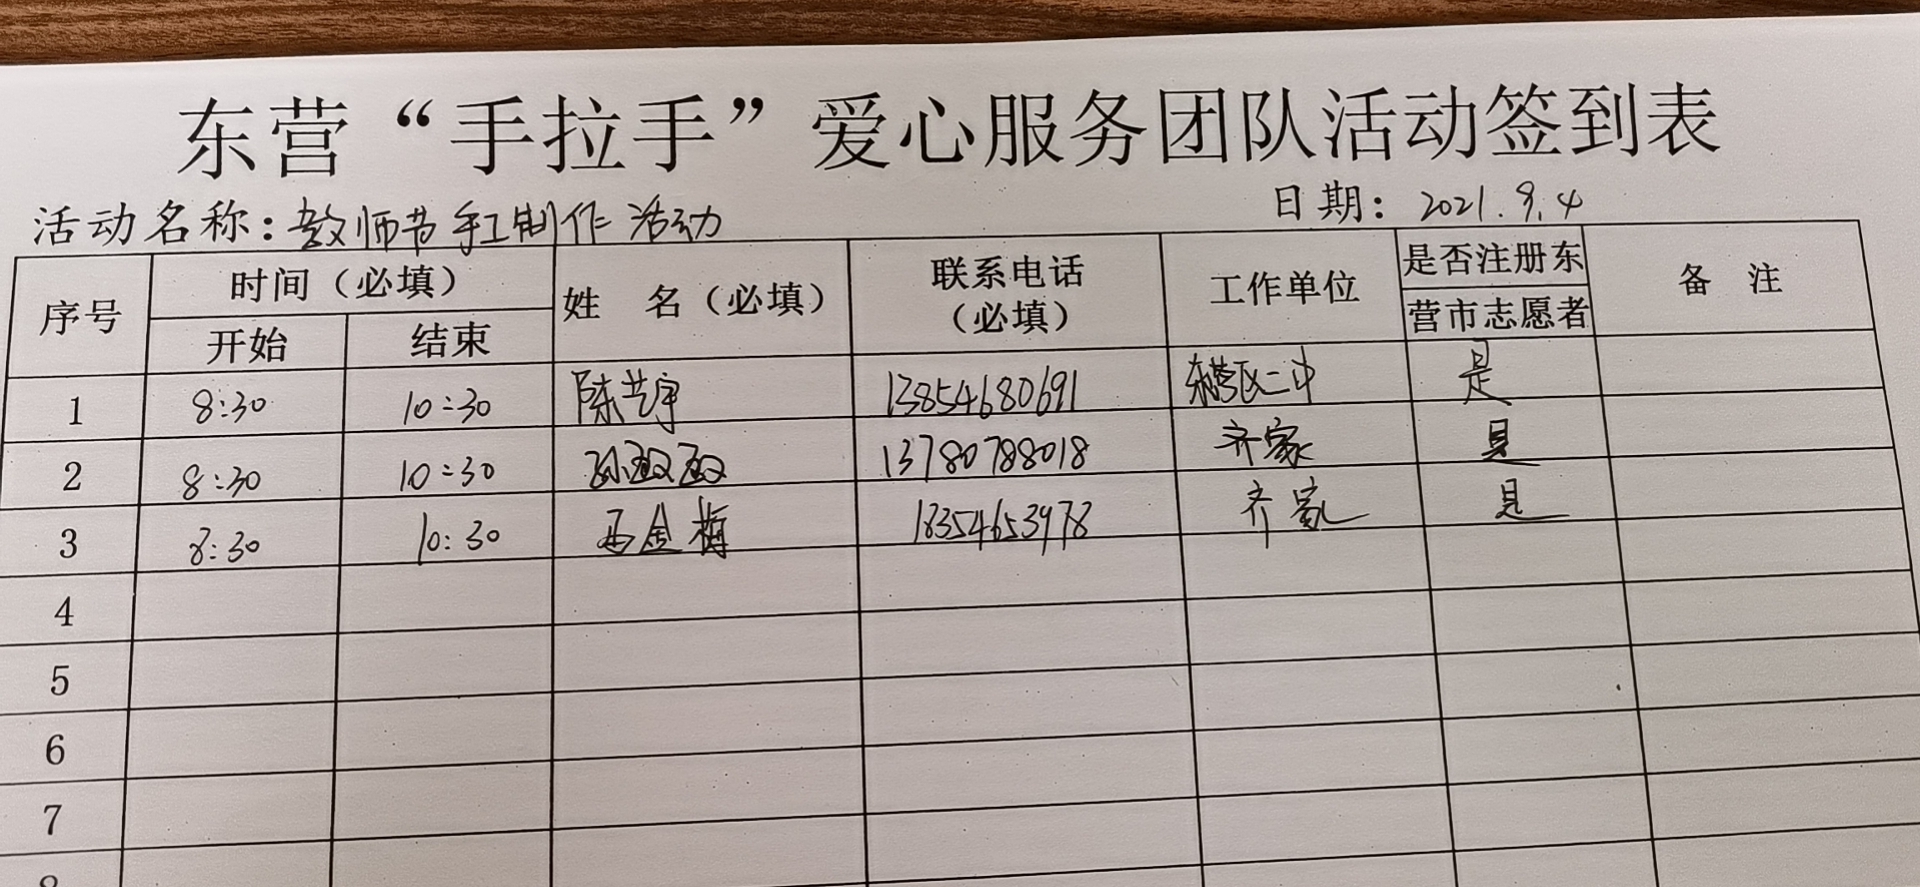 东营“手拉手”爱心服务团队活动签到表
活动名称：教师节手工制作活动 日期：2021.9.4
序号 时间（必填） 姓 名（必填） 联系电话（必填） 工作单位 是否注册东营市志愿者 备 注
开始 结束
1 8:30 10:30 陈艺宇 13854680691 东营区二中 是
2 8:30 10:30 孙政政 13780788018 齐家 是
3 8:30 10:30 金梅 18354653978 齐家 是
4
5
6
7
8